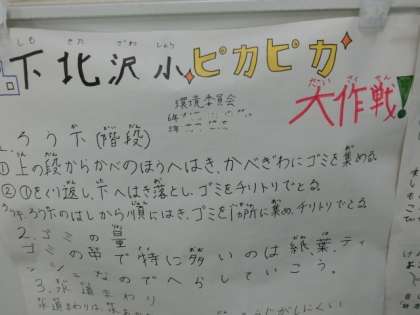 下北沢小ピカピカ
大作戦!
環境委員会
ろうか(階段)
①上の段からかべのほうへはき、かべぎわにゴミを集める。
②①をくり返し、下へはき落とし、ゴミをチリトリでとる。
ろうかのはしから順にはき、ゴミを1か所に集め、チリトリでとる。
2.ゴミの量
ゴミの中で特に多いのは紙、葉、ティ
ッシュなのでへらしていこう。
3.水道まわり
水道まわりは、